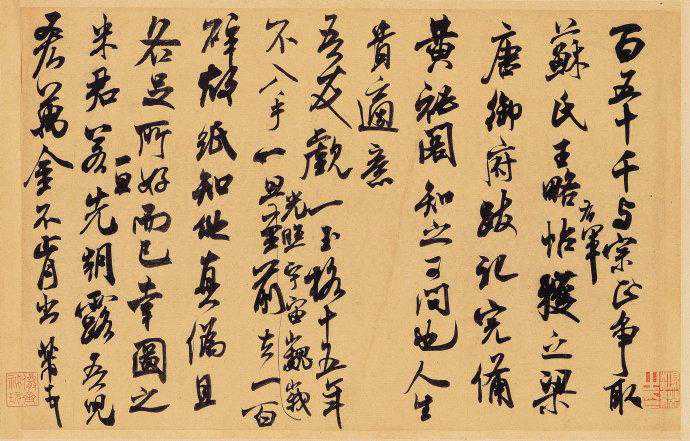 百五十千与宗正争取
蘇氏王略帖右軍獲之梁
唐御府跋記完備
黃祕閣知之可問也人生
貴適意
吾友覷一玉格十五年
不入手一旦光照宇宙巍峩至前去一百
碎故紙知他真偽且
各足所好而已幸圖之
米君若一旦先朝露吾兒
吝萬金不肯出芾